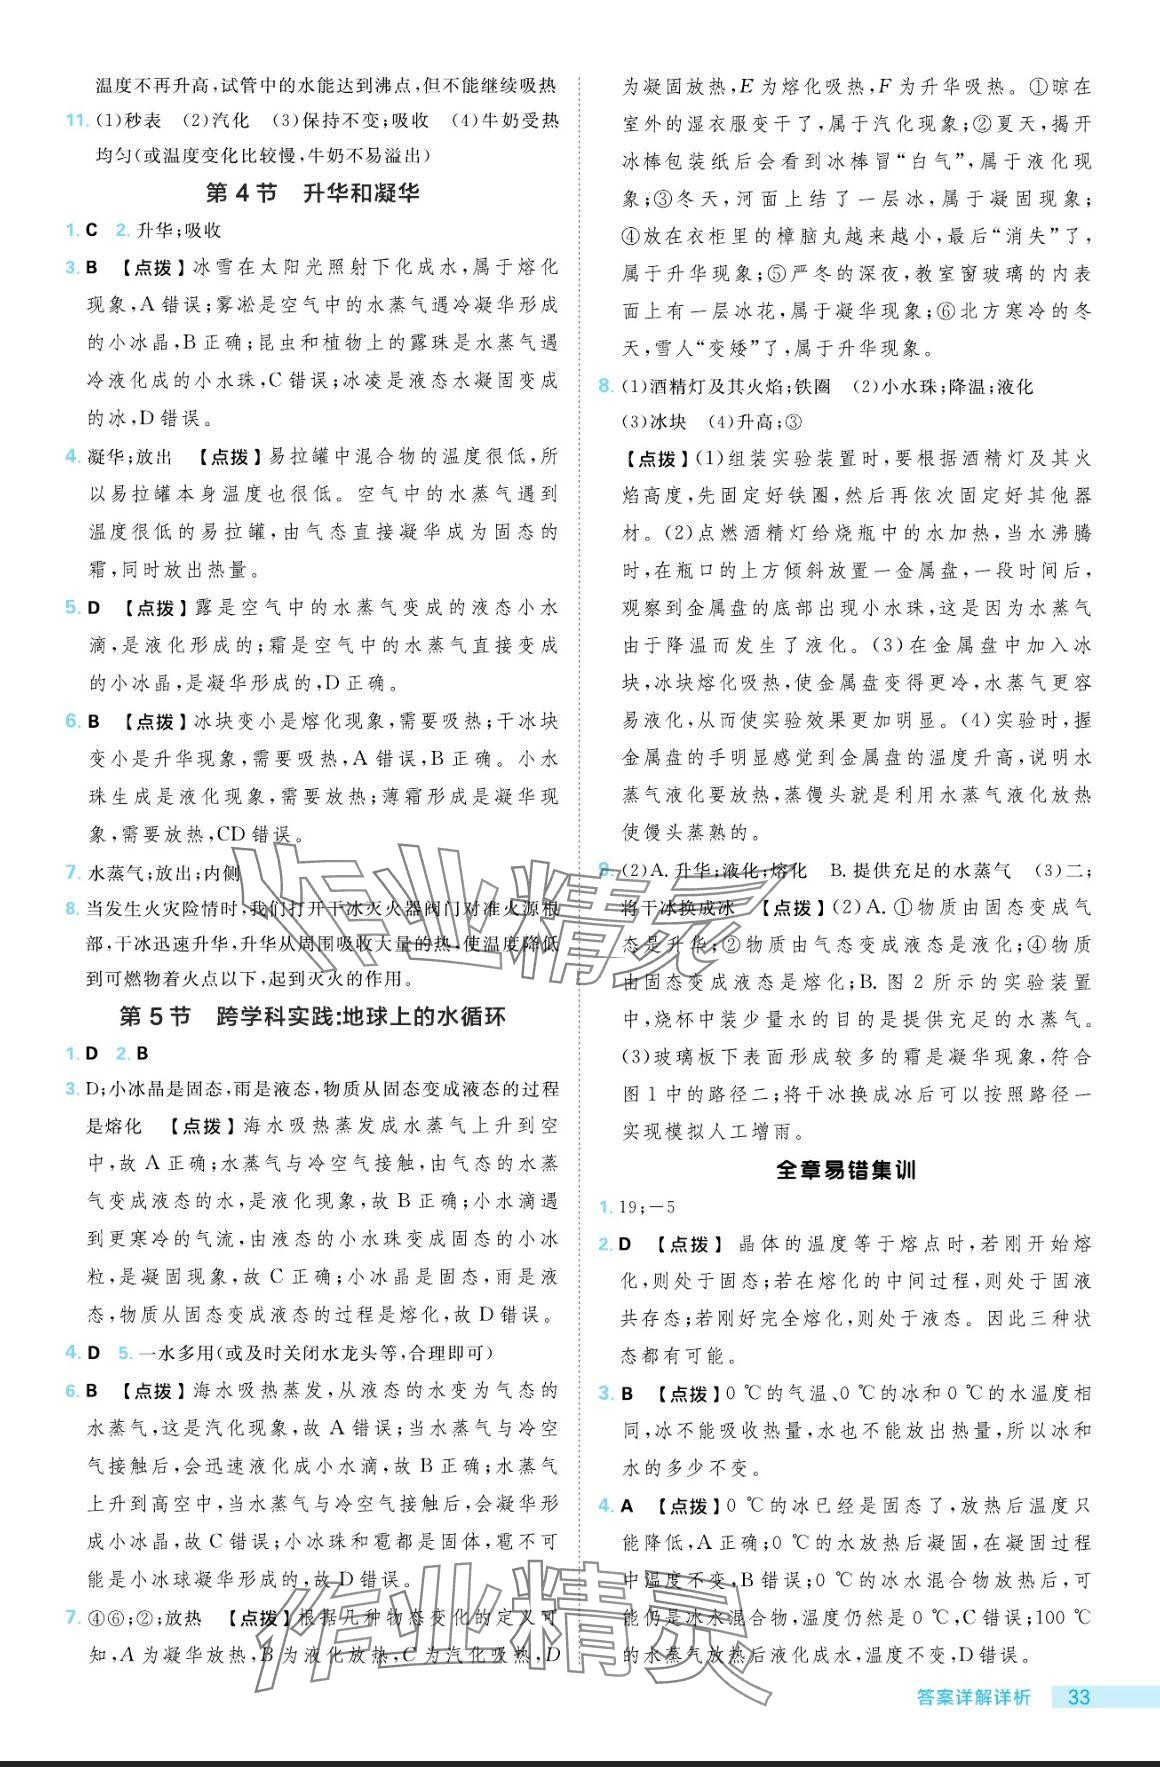 温度不再升高,试管中的水能达到沸点,但不能继续吸热
11. (1)秒表　(2)汽化　(3)保持不变;吸收　(4)牛奶受热
均匀(或温度变化比较慢,牛奶不易溢出)
第 4 节　升华和凝华
1. C　2. 升华;吸收
3. B　【点拨】冰雪在太阳光照射下化成水,属于熔化
现象,A 错误;雾凇是空气中的水蒸气遇冷凝华形成
的小冰晶,B 正确;昆虫和植物上的露珠是水蒸气遇
冷液化成的小水珠,C 错误;冰凌是液态水凝固变成
的冰,D 错误。
4. 凝华;放出　【点拨】易拉罐中混合物的温度很低,所
以易拉罐本身温度也很低。空气中的水蒸气遇到
温度很低的易拉罐,由气态直接凝华成为固态的
霜,同时放出热量。
5. D　【点拨】露是空气中的水蒸气变成的液态小水
滴,是液化形成的;霜是空气中的水蒸气直接变成
的小冰晶,是凝华形成的,D 正确。
6. B　【点拨】冰块变小是熔化现象,需要吸热;干冰块
变小是升华现象,需要吸热,A 错误,B 正确。小水
珠生成是液化现象,需要放热;薄霜形成是凝华现
象,需要放热,CD 错误。
7. 水蒸气;放出;内侧
8. 当发生火灾险情时,我们打开干冰灭火器阀门对准火源根
部,干冰迅速升华,升华从周围吸收大量的热,使温度降低
到可燃物着火点以下,起到灭火的作用。
第 5 节　跨学科实践:地球上的水循环
1. D　2. B
3. D;小冰晶是固态,雨是液态,物质从固态变成液态的过程
是熔化　【点拨】海水吸热蒸发成水蒸气上升到空
中,故 A 正确;水蒸气与冷空气接触,由气态的水蒸
气变成液态的水,是液化现象,故 B 正确;小水滴遇
到更寒冷的气流,由液态的小水珠变成固态的小冰
粒,是凝固现象,故 C 正确;小冰晶是固态,雨是液
态,物质从固态变成液态的过程是熔化,故 D 错误。
4. D　5. 一水多用(或及时关闭水龙头等,合理即可)
6. B　【点拨】海水吸热蒸发,从液态的水变为气态的
水蒸气,这是汽化现象,故 A 错误;当水蒸气与冷空
气接触后,会迅速液化成小水滴,故 B 正确;水蒸气
上升到高空中,当水蒸气与冷空气接触后,会凝华形
成小冰晶,故 C 错误;小冰珠和雹都是固体,雹不可
能是小冰球凝华形成的,故 D 错误。
7. ④⑥;②;放热　【点拨】根据几种物态变化的定义可
知,A 为凝华放热,B 为液化放热,C 为汽化吸热,D
为凝固放热,E 为熔化吸热,F 为升华吸热。①晾在
室外的湿衣服变干了,属于汽化现象;②夏天,揭开
冰棒包装纸后会看到冰棒冒“白气”,属于液化现
象;③冬天,河面上结了一层冰,属于凝固现象;
④放在衣柜里的樟脑丸越来越小,最后“消失”了,
属于升华现象;⑤严冬的深夜,教室窗玻璃的内表
面上有一层冰花,属于凝华现象;⑥北方寒冷的冬
天,雪人“变矮”了,属于升华现象。
8. (1)酒精灯及其火焰;铁圈　(2)小水珠;降温;液化
(3)冰块　(4)升高;③
【点拨】(1)组装实验装置时,要根据酒精灯及其火
焰高度,先固定好铁圈,然后再依次固定好其他器
材。(2)点燃酒精灯给烧瓶中的水加热,当水沸腾
时,在瓶口的上方倾斜放置一金属盘,一段时间后,
观察到金属盘的底部出现小水珠,这是因为水蒸气
由于降温而发生了液化。(3)在金属盘中加入冰
块,冰块熔化吸热,使金属盘变得更冷,水蒸气更容
易液化,从而使实验效果更加明显。(4)实验时,握
金属盘的手明显感觉到金属盘的温度升高,说明水
蒸气液化要放热,蒸馒头就是利用水蒸气液化放热
使馒头蒸熟的。
9. (2)A. 升华;液化;熔化　B. 提供充足的水蒸气　(3)二;
将干冰换成冰　【点拨】(2)A. ①物质由固态变成气
态是升华;②物质由气态变成液态是液化;④物质
由固态变成液态是熔化;B. 图 2 所示的实验装置
中,烧杯中装少量水的目的是提供充足的水蒸气。
(3)玻璃板下表面形成较多的霜是凝华现象,符合
图 1 中的路径二;将干冰换成冰后可以按照路径一
实现模拟人工增雨。
全章易错集训
1. 19;－5
2. D　【点拨】晶体的温度等于熔点时,若刚开始熔
化,则处于固态;若在熔化的中间过程,则处于固液
共存态;若刚好完全熔化,则处于液态。因此三种状
态都有可能。
3. B　【点拨】0 ℃的气温、0 ℃的冰和 0 ℃的水温度相
同,冰不能吸收热量,水也不能放出热量,所以冰和
水的多少不变。
4. A　【点拨】0 ℃的冰已经是固态了,放热后温度只
能降低,A 正确;0 ℃的水放热后凝固,在凝固过程
中温度不变,B 错误;0 ℃的冰水混合物放热后,可
能仍是冰水混合物,温度仍然是 0 ℃,C 错误;100 ℃
的水蒸气放热后液化成水,温度不变,D 错误。
作业精灵
作业精灵
答案详解详析　33